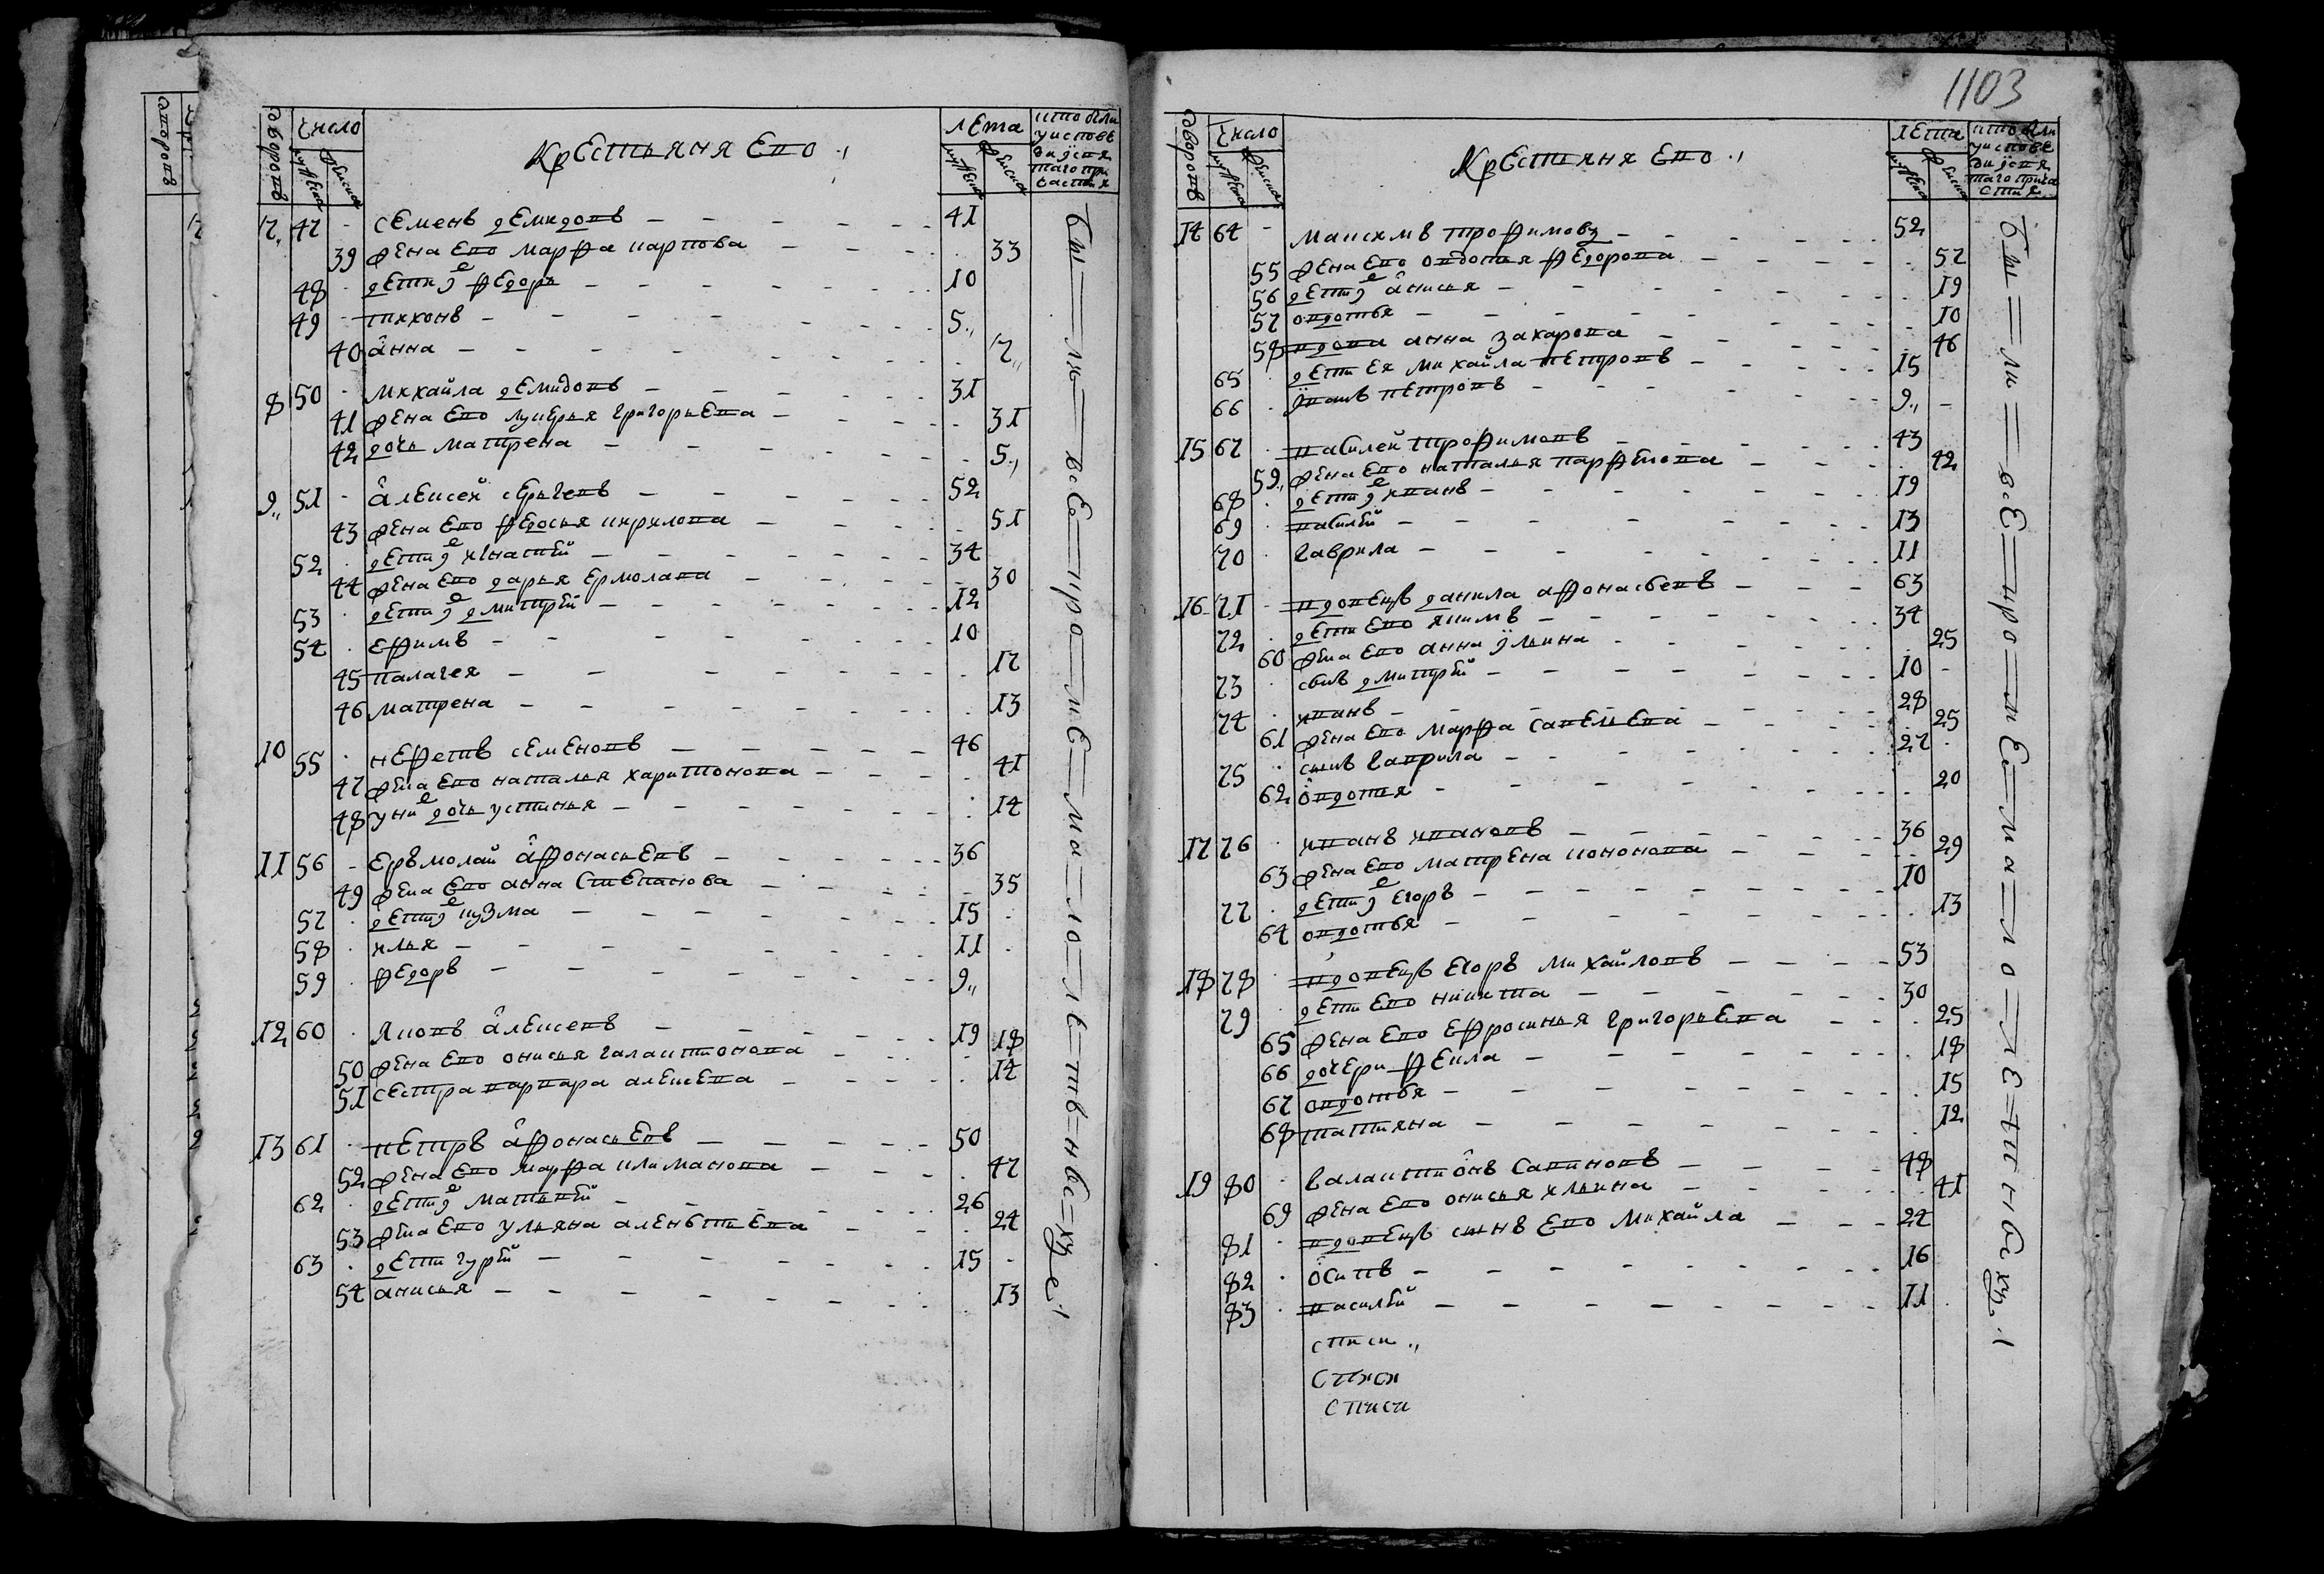 дворовъ число крестьяня ево лѣта кто были у исповеди и у святаго причастия
мужеска женска мужеска женска
7 47 семенъ демидовъ 41
39 жена ево марфа карпова 33
48 дети федоръ 10
49 тихонъ 5
40 анна 7
8 50 михайла демидовъ 31
41 жена ево лукерья григорьева 31
42 дочь матрена 5
9 51 алексей сергеевъ 52
43 жена ево федосья кирилова 51
52 дети игнатей 34
44 жена ево дарья ермолава 30
53 дети дмитрей 12
54 ефимъ 10
45 палагея 17
46 матрена 13
10 55 нефетъ семеновъ 46
47 жена ево наталья харитонова 41
48 у них дочь устинья 14
11 56 ермолай афонасьевъ 36
49 жена ево анна степанова 35
57 дети кузма 15
58 илья 11
59 федоръ 9
12 60 яковъ алексеевъ 19
50 жена ево онисья галактионова 18
51 сестра варвара алексева 14
13 61 петръ афонасьевъ 50
52 жена ево марфа климанова 47
62 дети матвей 26
53 жена ево ульяна 24
63 дети гурей 15
54 анисья 13
1103
дворовъ число крестьяня ево лѣта кто были у исповеди и у святаго причастия
мужеска женска мужеска женска
14 64 максимъ трофимовъ 52
55 жена ево овдотья федорова 57
56 дети анисья 19
57 овдотья 10
58 вдова анна захарова 46
65 дети ея михайла петровъ 15
66 иванъ петровъ 9
15 67 василей трофимовъ 43
59 жена ево наталья парфенова 42
68 дети иванъ 19
69 василей 13
70 гаврила 11
16 71 вдовецъ данила афонасьевъ 63
72 дети ево якимъ 34
60 жена ево анна ильина 25
73 сынъ дмитрей 10
74 иванъ 28
61 жена ево марфа савельева 25
75 сынъ гаврила 27
62 овдотья 20
17 76 иванъ ивановъ 36
63 жена ево матрена кононова 29
77 дети егоръ 10
64 овдотья 13
18 78 вдовецъ егоръ михайловъ 53
79 дети ево никита 30
65 жена ево ефросинья григорьева 25
66 дочери фекла 18
67 овдотья 15
68 татияна 12
19 80 галактионъ савиновъ 48
69 жена ево онисья ильина 41
81 вдовецъ сынъ ево михайла 24
82 осипъ 16
83 василей 11